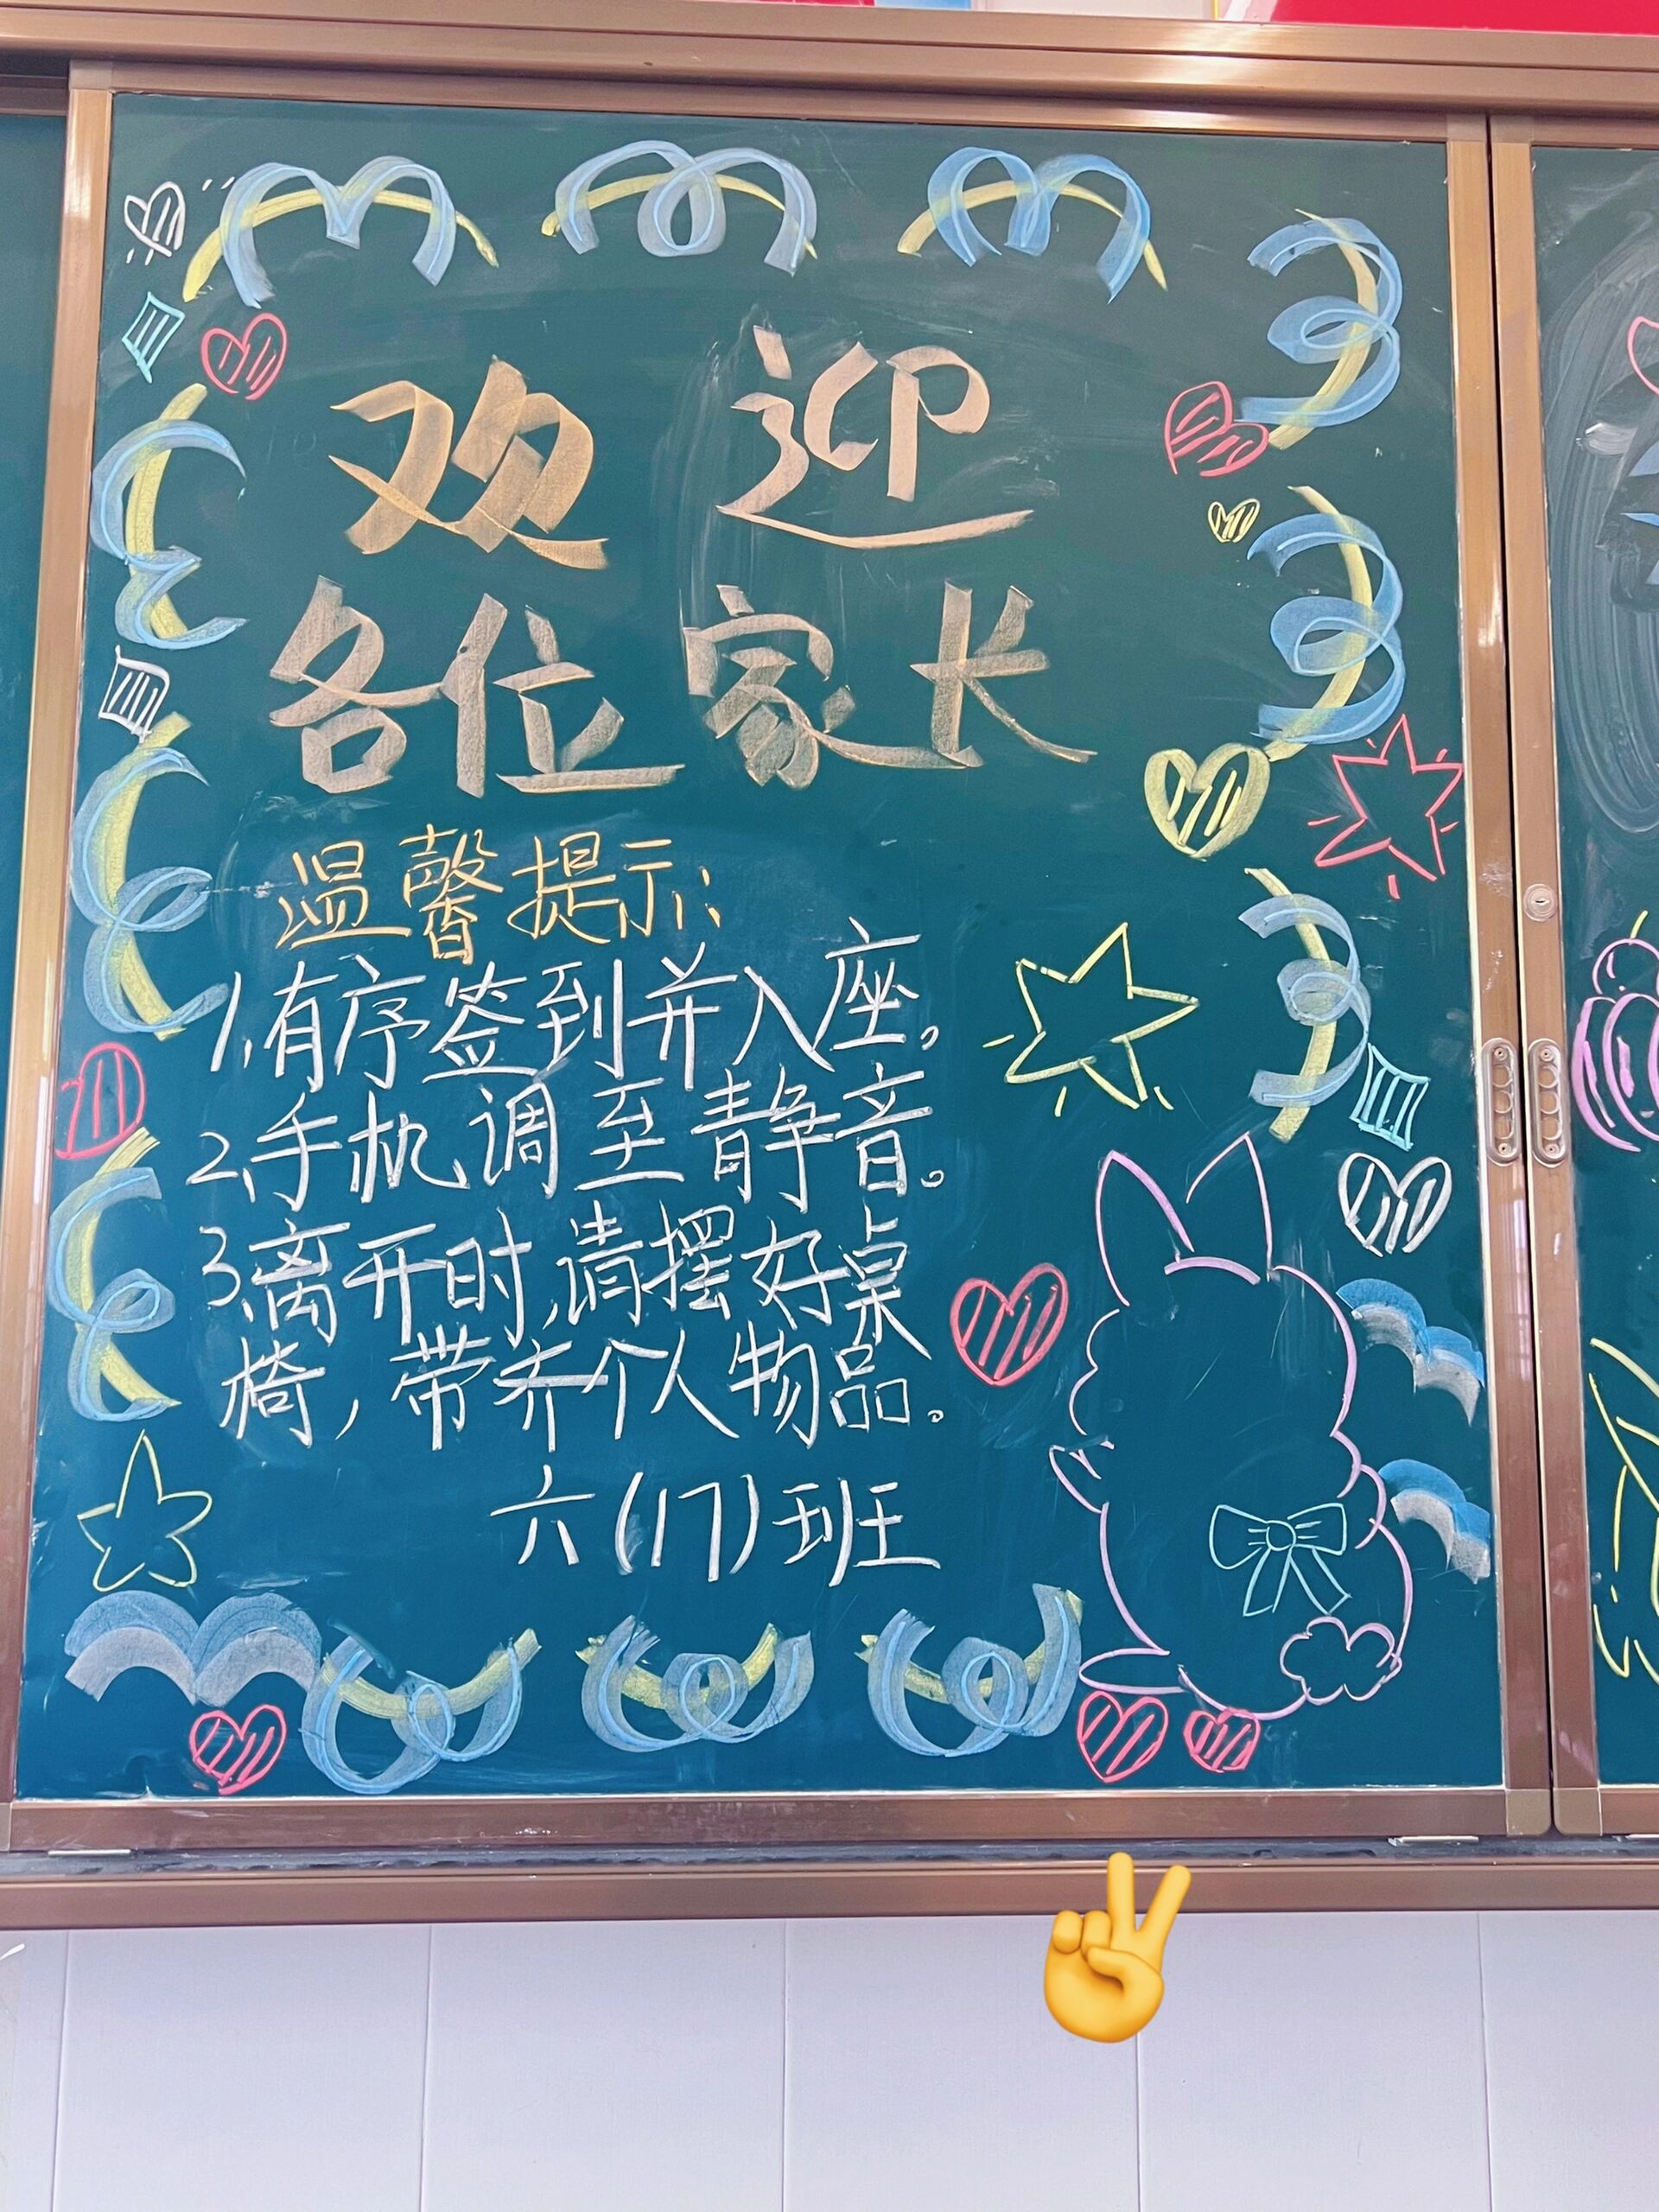 欢迎
各位家长
温馨提示：
1.有序签到并入座。
2.手机调至静音。
3.离开时,请摆好桌
椅，带齐个人物品。
六(17)班